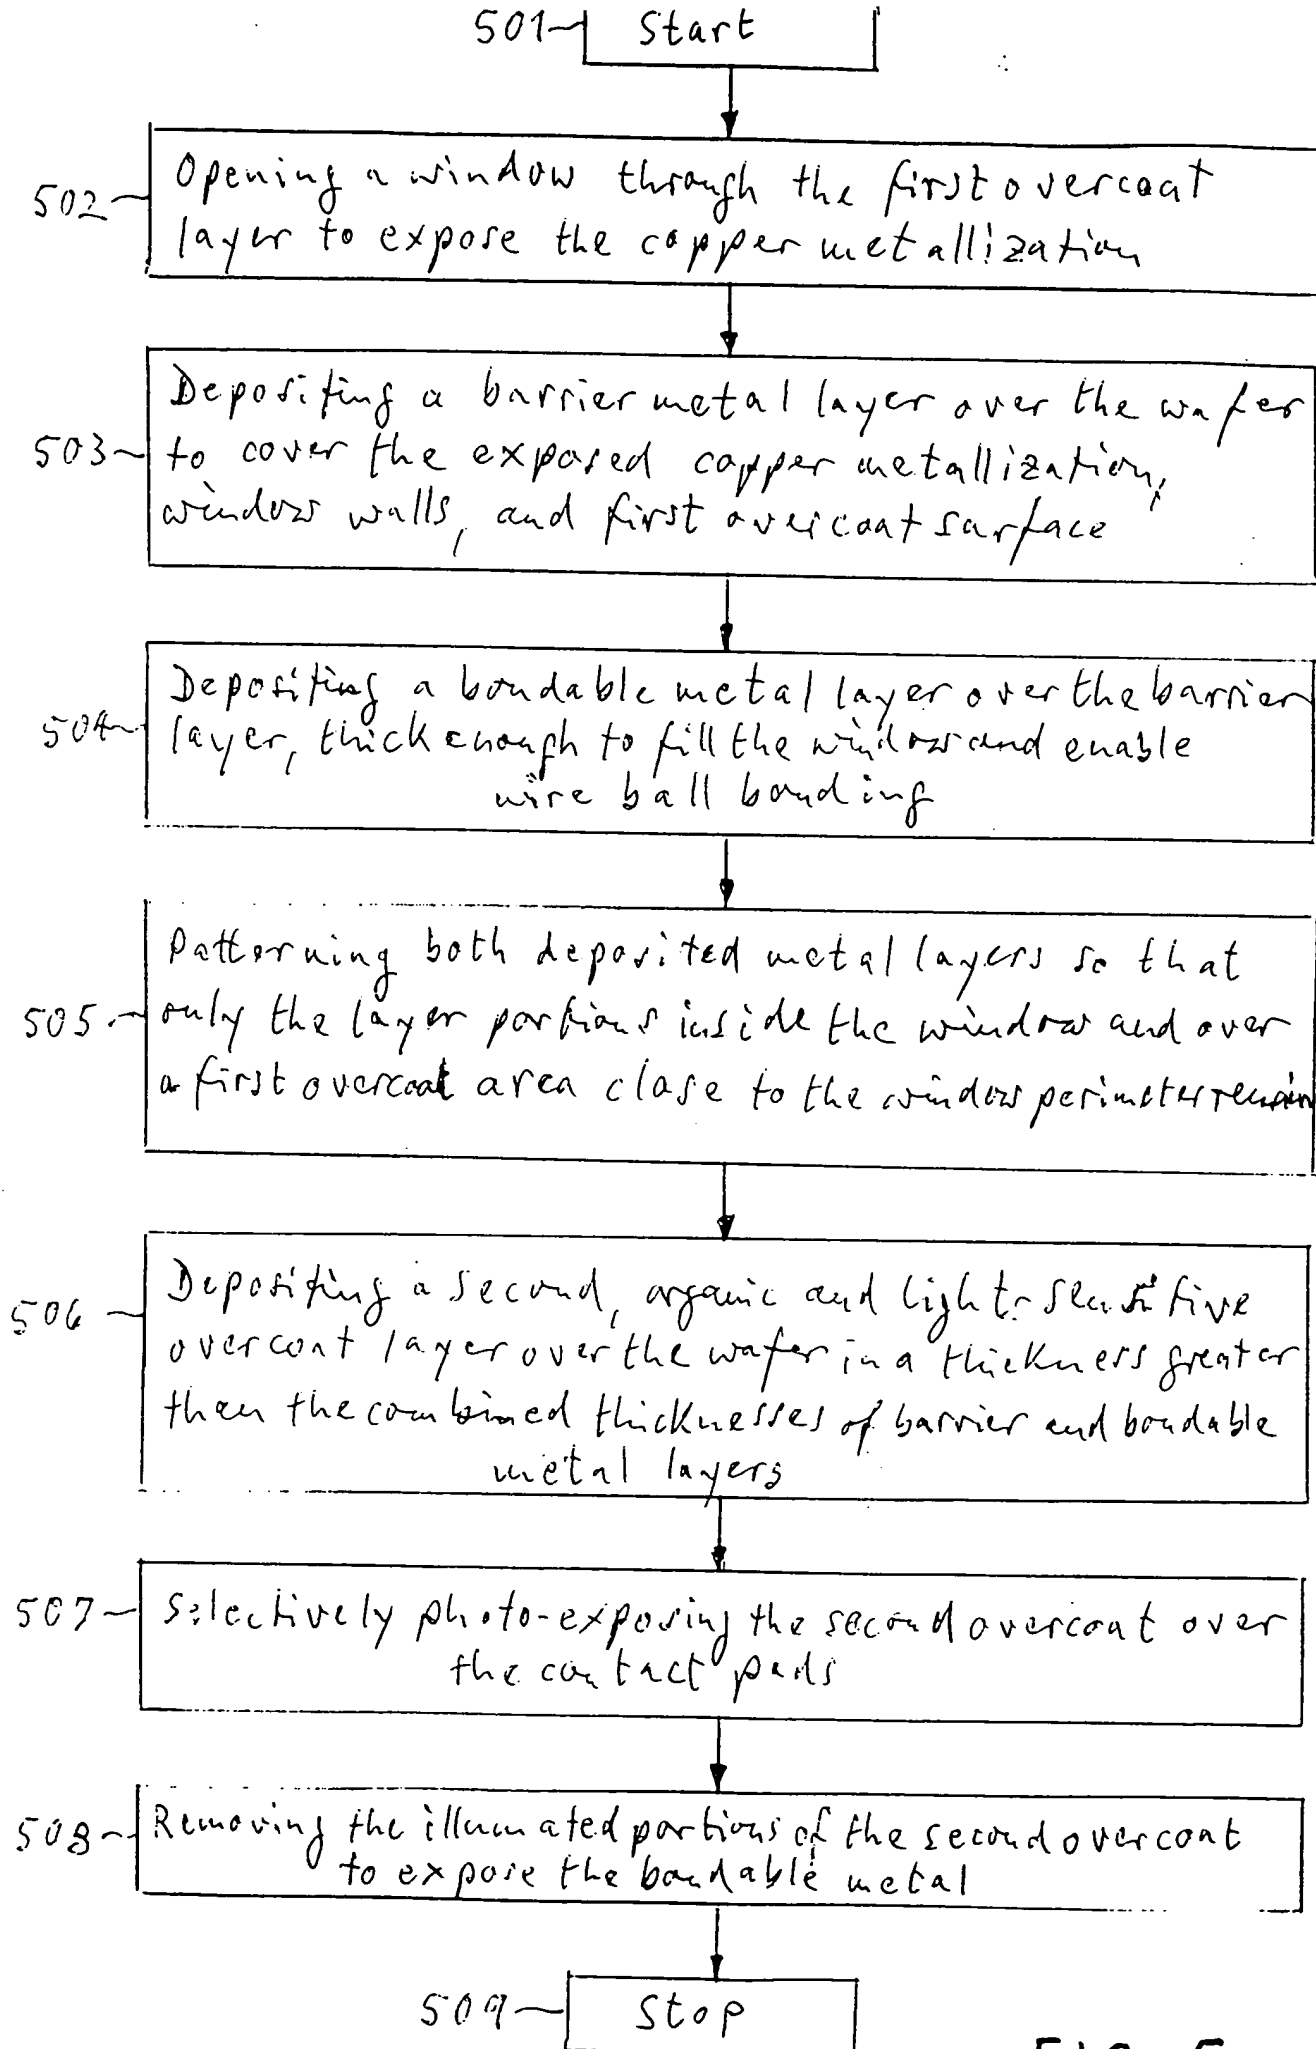 501 Start
502 Opening a window through the first overcoat
layer to expose the copper metallization
503 Depositing a barrier metal layer over the wafer
to cover the exposed copper metallization,
window walls, and first overcoat surface
504 Depositing a bondable metal layer over the barrier
layer, thick enough to fill the window and enable
wire ball bonding
505 Patterning both deposited metal layers so that
only the layer portions inside the window and over
a first overcoat area close to the window perimeter remain
506 Depositing a second, organic and light-sensitive
overcoat layer over the wafer in a thickness greater
than the combined thicknesses of barrier and bondable
metal layers
507 Selectively photo-exposing the second overcoat over
the contact pads
508 Removing the illumated portions of the second overcoat
to expose the bondable metal
509 Stop